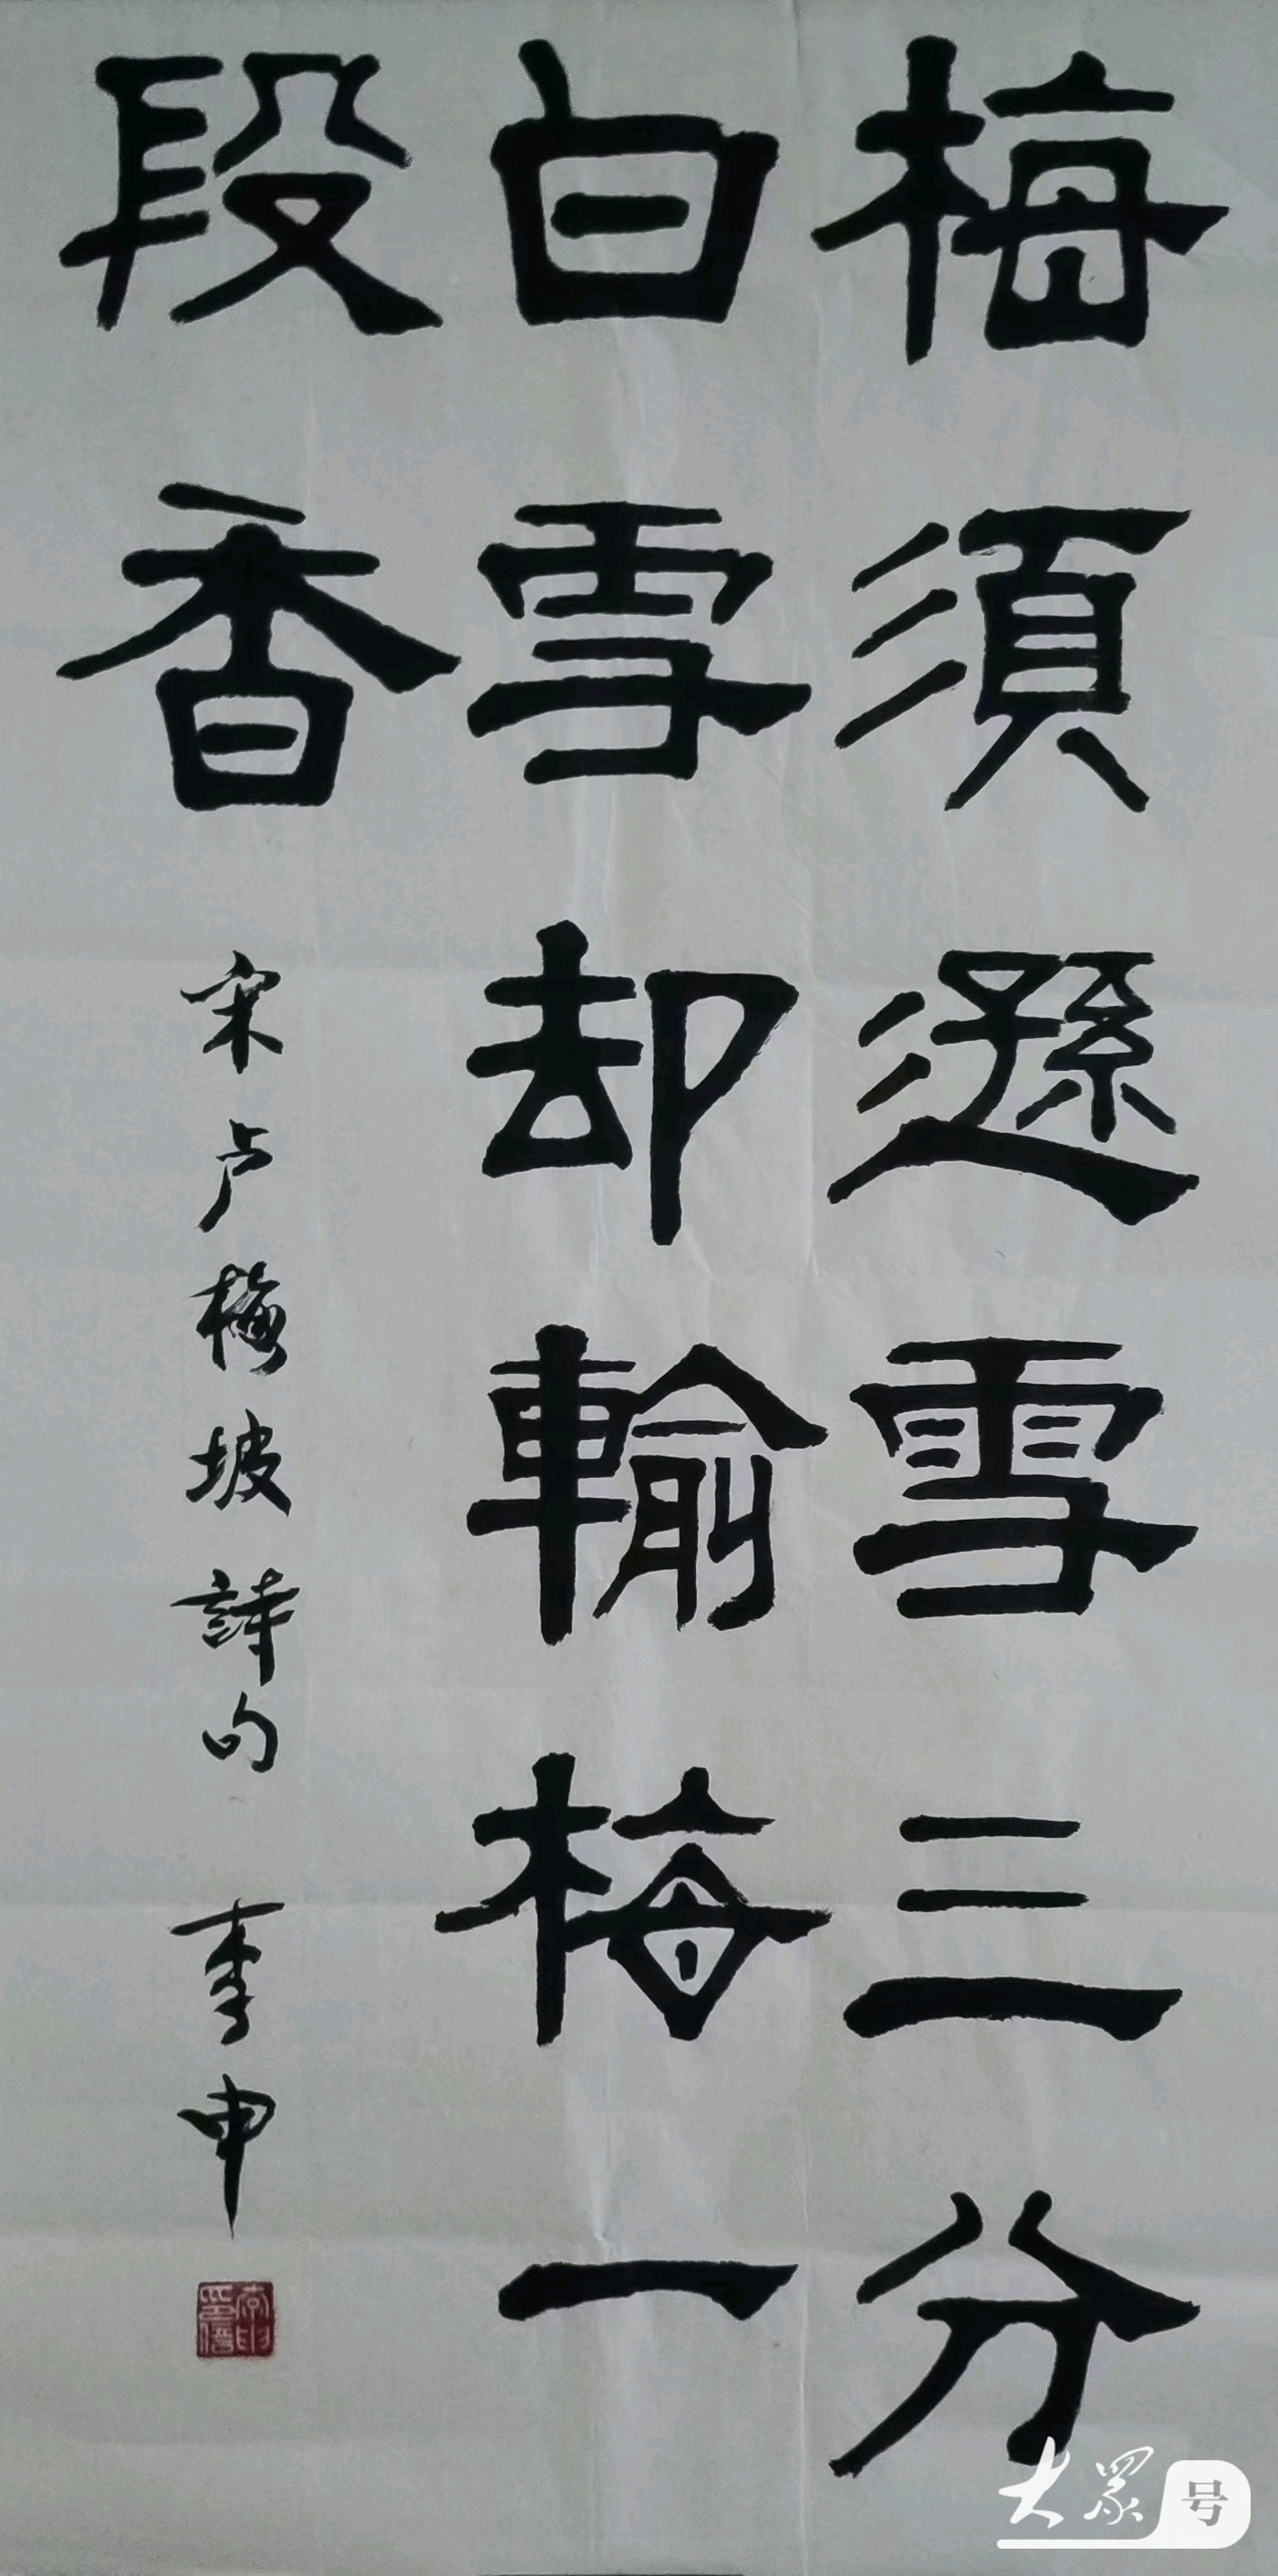 梅須遜雪三分
白雪却輸梅一
段香
宋卢梅坡詩句
李申
李申印信
大眾号